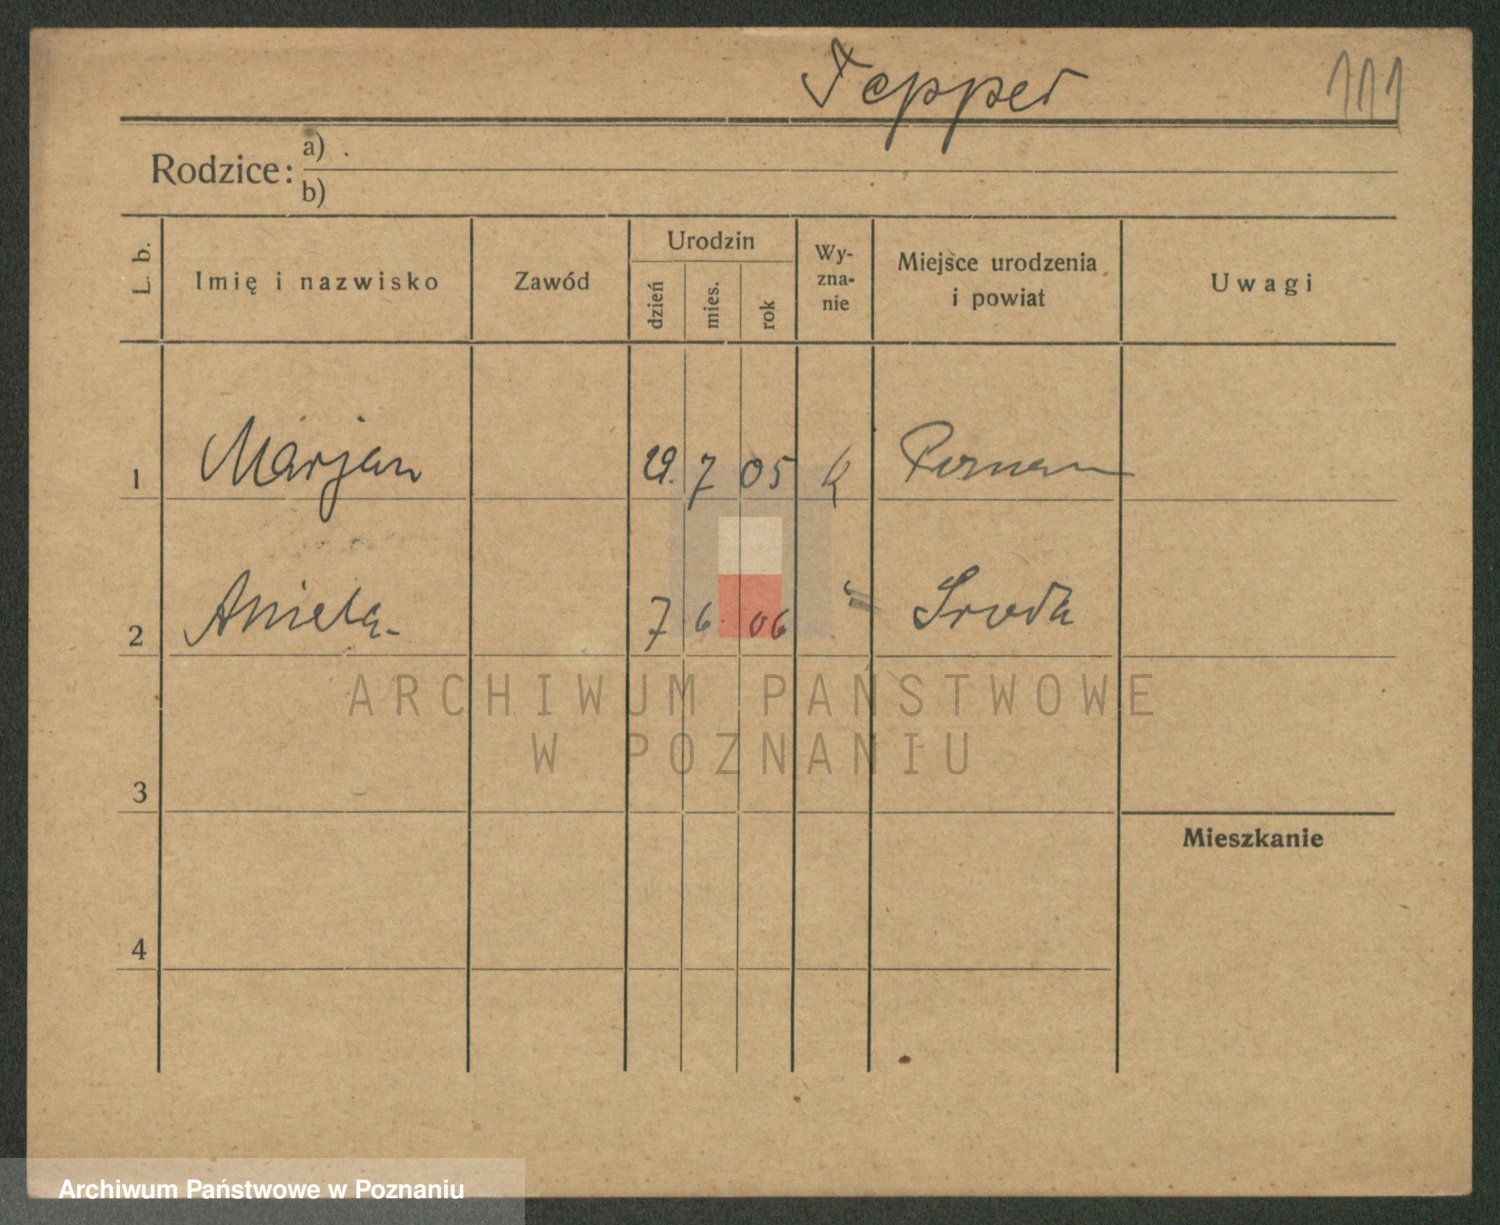 Tepper 111
Rodzice: a)
b)
L. b. Imię i nazwisko Zawód Urodzin dzień mies. rok Wy-zna-nie Miejsce urodzenia i powiat Uwagi
1 Marjan 29. 7 05 k Poznan
2 Aniela 7 6. 06 " Sroda
ARCHIWUM PAŃSTWOWE
W POZNANIU
3
Mieszkanie
4
Archiwum Państwowe w Poznaniu